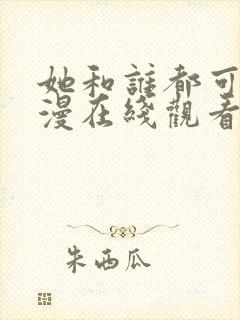 她和誰都可
漫在綫觀看
朱西瓜